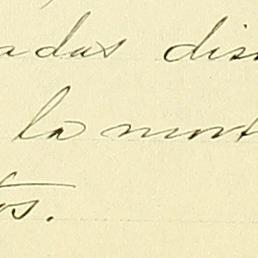 adas dis
la mort
os.